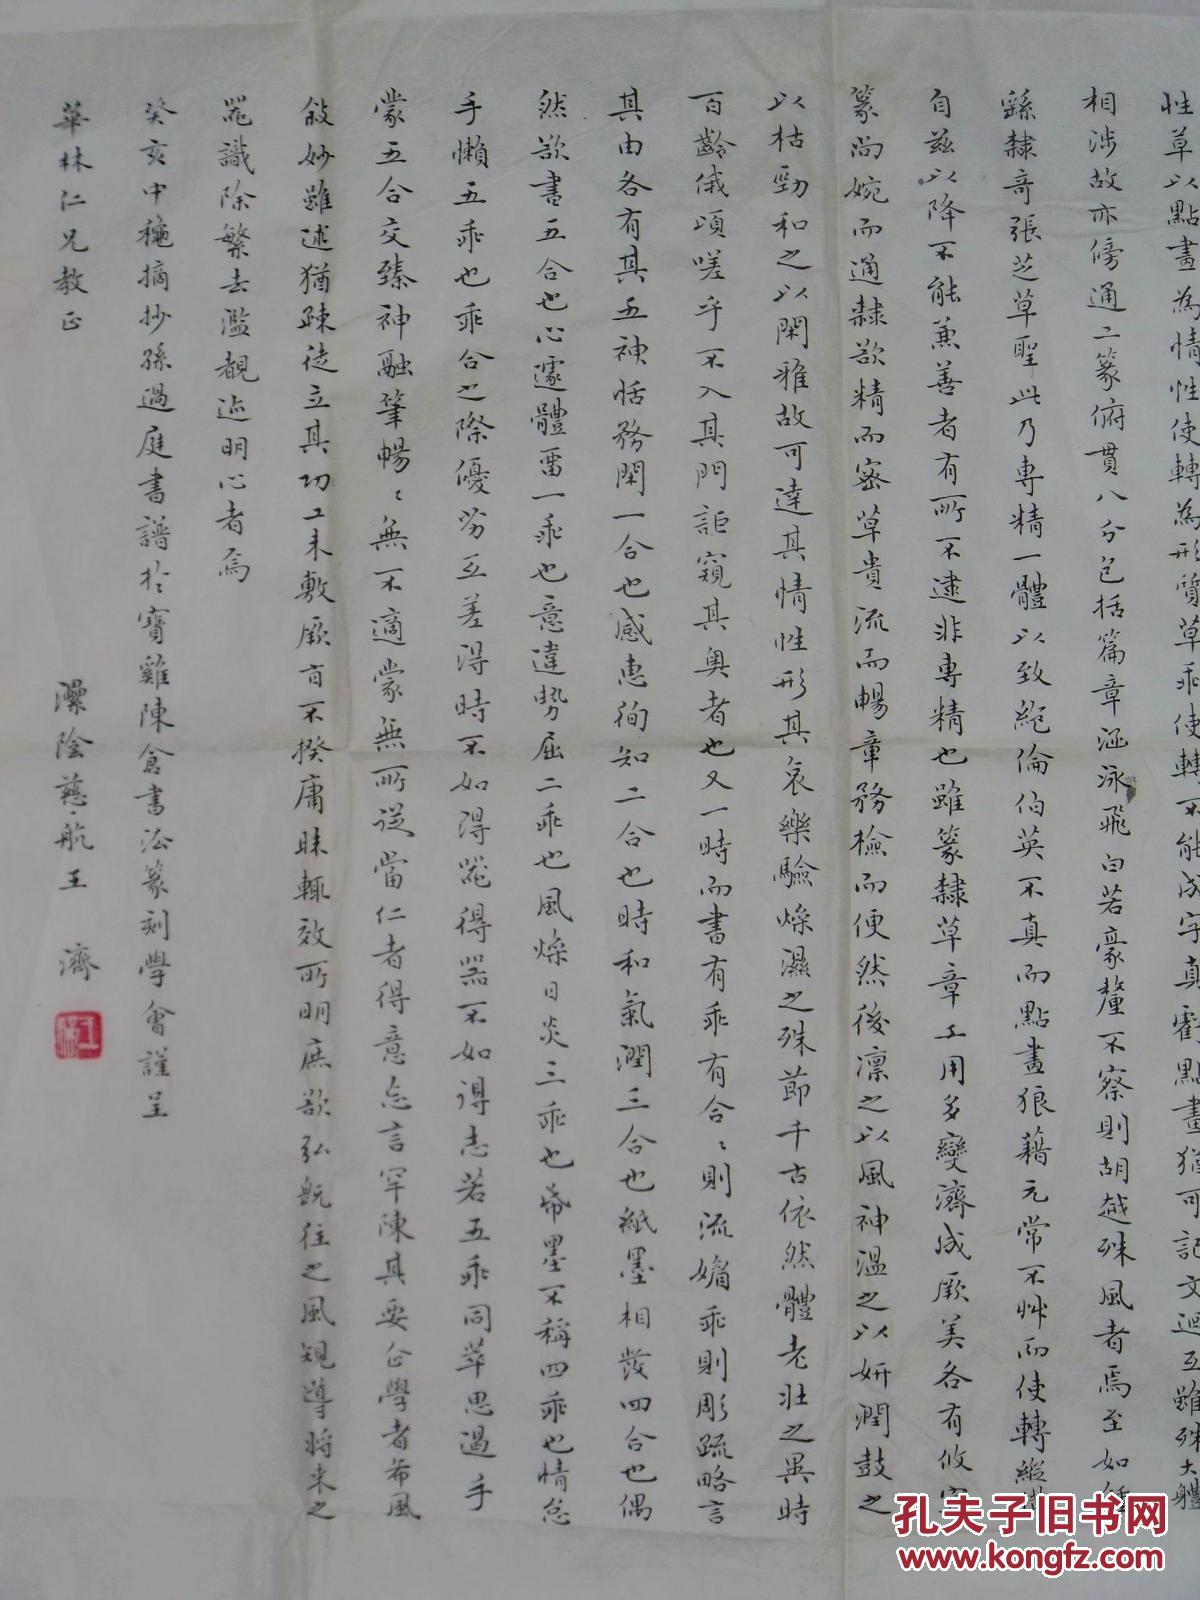 性草以點畫為情性使轉為形質草乖使轉不能成字真虧點畫猶可記文迴互雖殊大體
相涉故亦傍通二篆俯貫八分包括篇章涵泳飛白若豪釐不察則胡越殊風者焉至如鍾
繇隸奇張芝草聖此乃專精一體以致絕倫伯英不真而點畫狼藉元常不草而使轉縱橫
自茲以降不能兼善者有所不逮非專精也雖篆隸草章工用多變濟成厥美各有攸宜
篆尚婉而通隸欲精而密草貴流而暢章務檢而便然後凛之以風神溫之以妍潤鼓之
以枯勁和之以閑雅故可達其情性形其哀樂驗燥濕之殊節千古依然體老壯之異時
百齡俄頃嗟乎不入其門詎窺其奧者也又一時而書有乖有合〻則流媚乖則彫疏略言
其由各有其五神恬務閑一合也感惠徇知二合也時和氣潤三合也紙墨相發四合也偶
然欲書五合也心遽體留一乖也意違勢屈二乖也風燥日炎三乖也帋墨不稱四乖也情怠
手懶五乖也乖合之際優劣互差得時不如得器得器不如得志若五乖同萃思遏手
蒙五合交臻神融筆暢〻無不適蒙無所從當仁者得意忘言罕陳其要企學者希風
敘妙雖述猶疎徒立其功工未敷厥旨不揆庸昧輒效所明庶欲弘既往之風規導將來之
器識除繁去濫覩迹明心者焉
癸亥中穐摘抄孫過庭書譜於寶雞陳倉書法篆刻學會謹呈
華林仁兄教正
灤陰慈航王 濟
孔夫子旧书网
www.kongfz.com